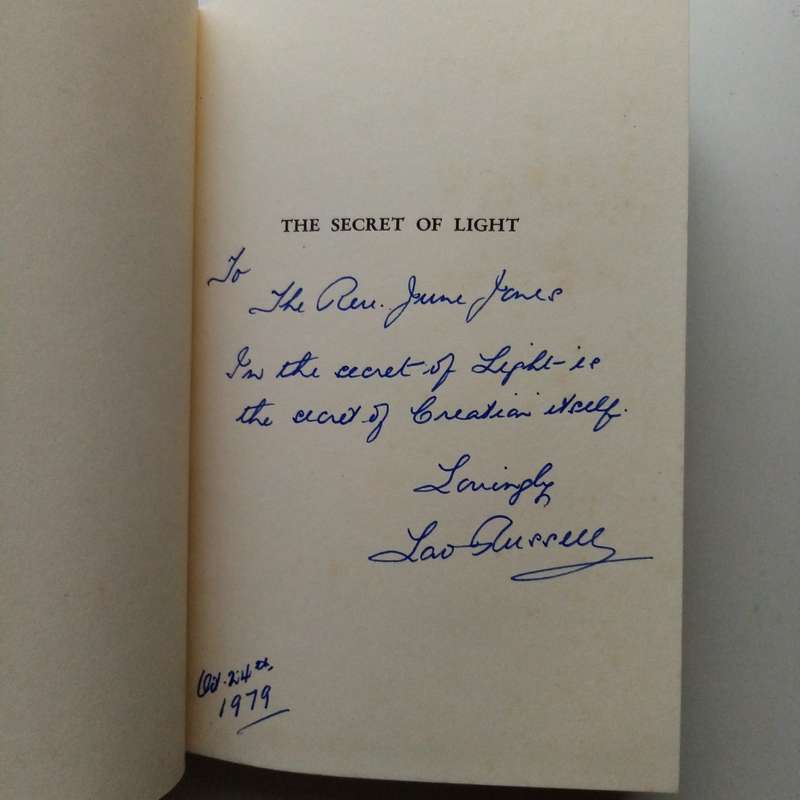 THE SECRET OF LIGHT
To
The Rev. June Jones
In the secret of Light is
the secret of Creation itself.
Lovingly
Lao Russell
Oct. 24th,
1979